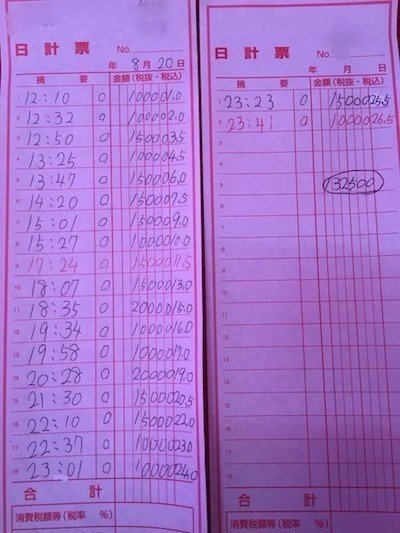 日計票 No.
年 8 月 20 日
摘 要 金額(税抜・税込)
1 12:10 0 10000 1.0
2 12:32 0 10000 2.0
3 12:50 0 15000 3.5
4 13:25 0 10000 4.5
5 13:47 0 15000 6.0
6 14:20 0 15000 7.5
7 15:01 0 15000 9.0
8 15:27 0 10000 10.0
9 17:24 0 15000 11.5
10 18:07 0 15000 13.0
11 18:35 0 20000 15.0
12 19:34 0 10000 16.0
13 19:58 0 10000 17.0
14 20:28 0 20000 19.0
15 21:30 0 15000 20.5
16 22:10 0 15000 22.0
17 22:37 0 10000 23.0
18 23:01 0 10000 24.0
合 計
消費税額等(税率 %)
日計票 No.
年 月 日
摘 要 金額(税抜・税込)
1 23:23 0 15000 25.5
2 23:41 0 10000 26.5
3
4
5 132500
6
7
8
9
10
11
12
13
14
15
16
17
18
合 計
消費税額等(税率 %)